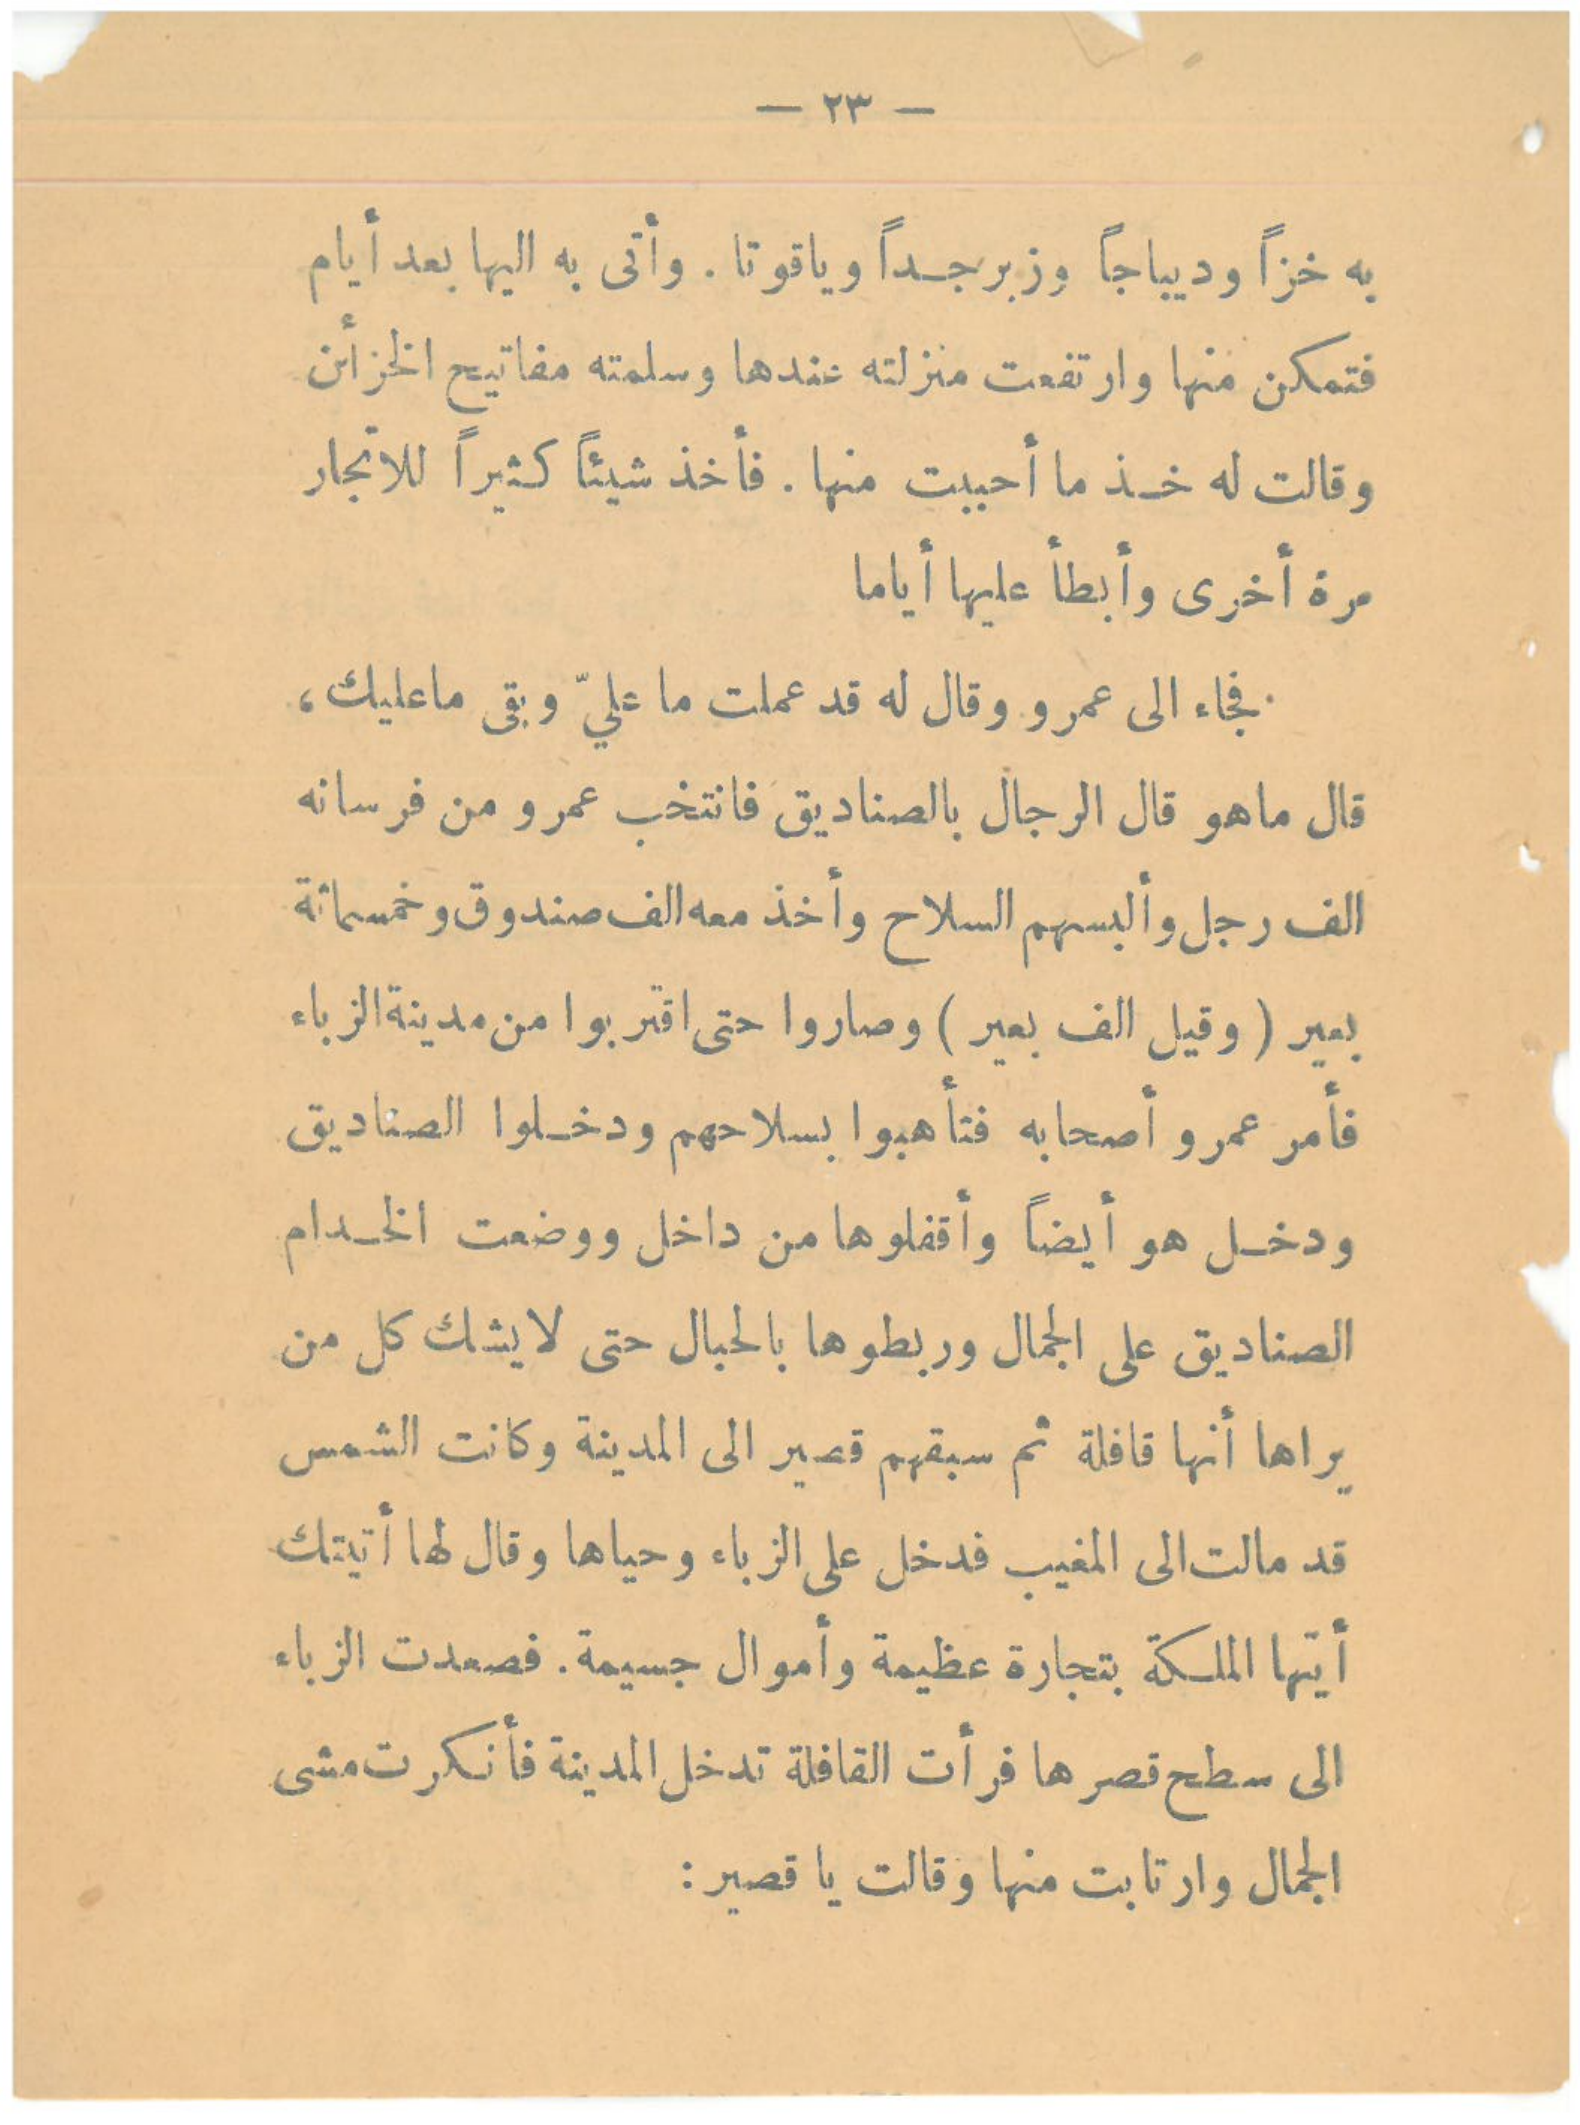 — ٢٣ —
به خزاً وديباجاً وزبرجـداً وياقوتا . وأتى به اليها بعد أيام
فتمكن منها وارتفعت منزلته عندها وسلمته مفاتيح الخزأن
وقالت له خـذ ما أحببت منها . فأخذ شيئاً كثيراً للاتجار
مرة أخرى وأبطأ عليها أياما
فجاء الى عمرو وقال له قد عملت ما عليّ وبقى ماعليك ،
قال ماهو قال الرجال بالصناديق فانتخب عمرو من فرسانه
الف رجل وألبسهم السلاح وأخذ معه الف صندوق وخمسمائة
بعير ( وقيل الف بعير ) وصاروا حتى اقتربوا من مدينة الزباء
فأمر عمرو أصحابه فتأهبوا بسلاحهم ودخـلوا الصناديق
ودخـل هو أيضاً وأقفلوها من داخل ووضعت الخـدام
الصناديق على الجمال وربطوها بالحبال حتى لايشك كل من
يراها أنها قافلة ثم سبقهم قصير الى المدينة وكانت الشمس
قد مالت الى المغيب فدخل على الزباء وحياها وقال لها أتيتك
أيتها الملـكة بتجارة عظيمة وأموال جسيمة . فصعدت الزباء
الى سطح قصرها فرأت القافلة تدخل المدينة فأنـكرت مشى
الجمال وارتابت منها وقالت يا قصير :